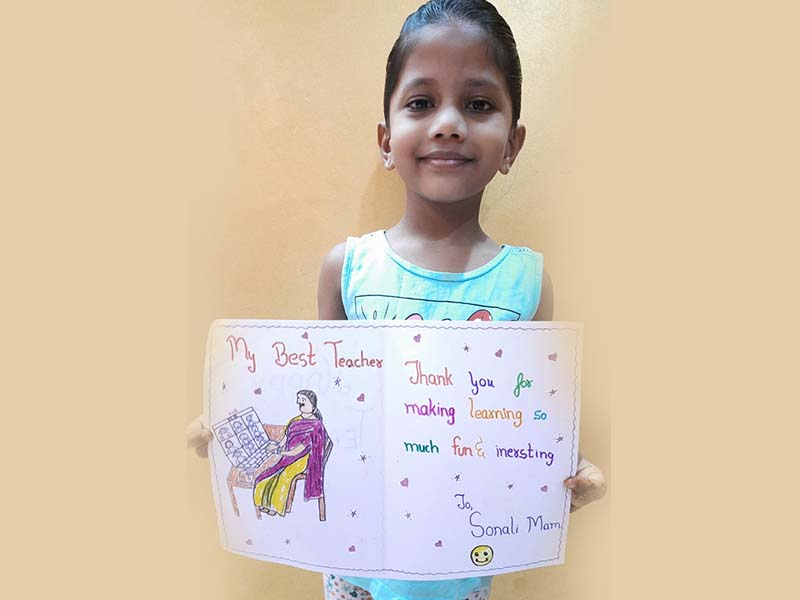 My Best Teacher
Thank you for
making learning so
much fun & inersting
To,
Sonali Mam